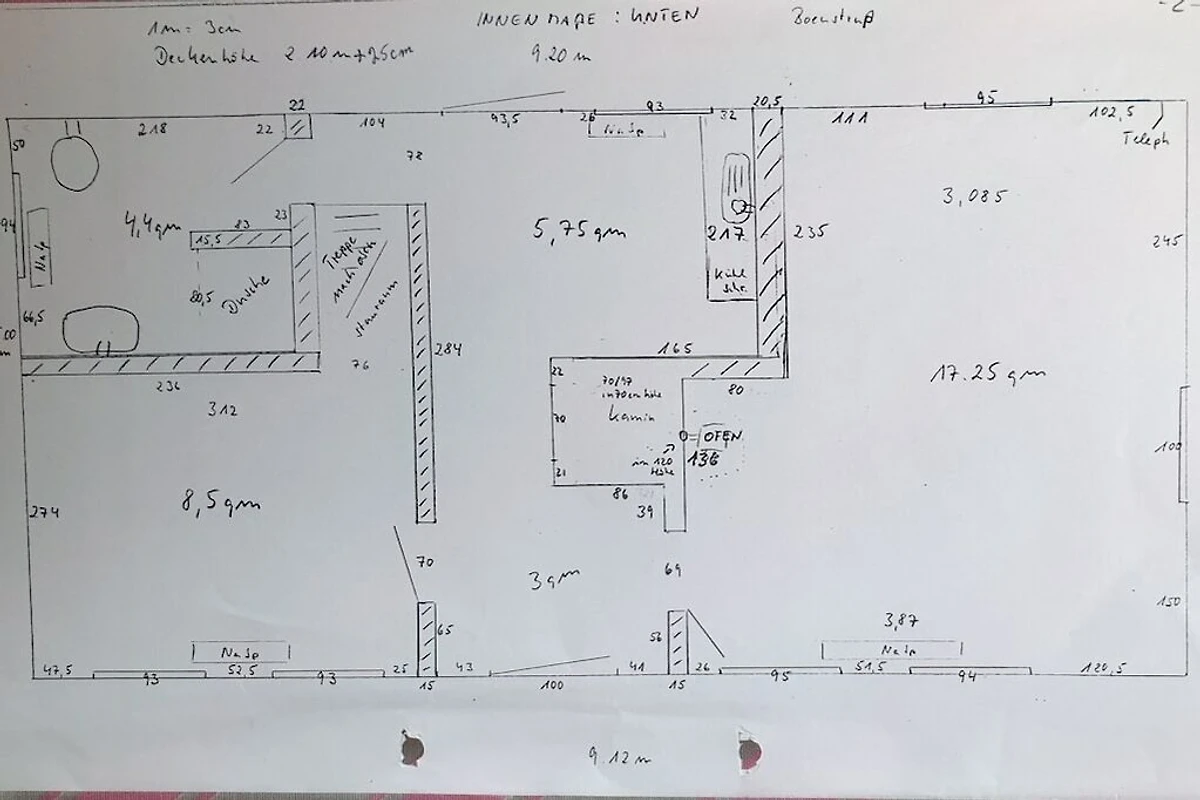 -2-
1m = 3cm
INNENMAßE : UNTEN
Deckenhöhe 2.10m + 25cm
9.20 m
22
93
20,5
95
50
218
22
104
93,5
26
Na Sp
32
111
102,5
Teleph
78
94
4,4qm
23
83
15,5
5,75 qm
3,085
217
235
245
Na Sp
Treppe
nach
Stauraum
80,5
Dusche
Kühl
schr.
66,5
236
76
284
165
312
22
70/97
in 70cm höhe
Kamin
80
17.25 qm
70
OFEN
136
in 120
Höhe
100
21
86
39
274
8,5 qm
70
3 qm
69
150
65
56
3,87
Na Sp
Na Sp
47,5
93
52,5
93
25
15
43
100
41
15
26
95
51,5
94
120,5
9.12 m